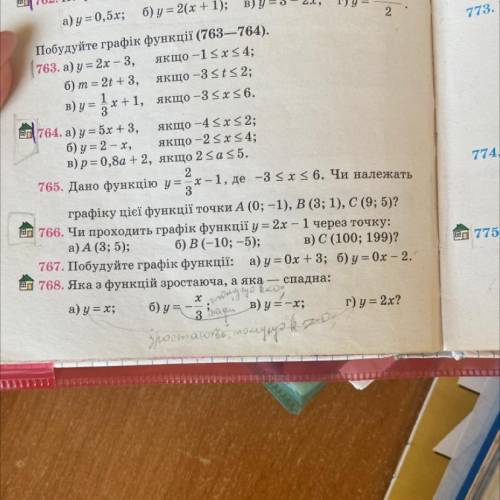 а) y = 0,5x; б) y = 2(x + 1); в) y = 3 − 2x, г) y =
2
773.
Побудуйте графік функції (763—764).
763. а) y = 2x − 3, якщо −1 ≤ x ≤ 4;
б) m = 2t + 3, якщо −3 ≤ t ≤ 2;
в) y = 1/3 x + 1, якщо −3 ≤ x ≤ 6.
764. а) y = 5x + 3, якщо −4 ≤ x ≤ 2;
б) y = 2 − x, якщо −2 ≤ x ≤ 4;
в) p = 0,8a + 2, якщо 2 ≤ a ≤ 5.
774.
765. Дано функцію y = 2/3 x − 1, де −3 ≤ x ≤ 6. Чи належать
графіку цієї функції точки A (0; −1), B (3; 1), C (9; 5)?
766. Чи проходить графік функції y = 2x − 1 через точку:
а) A (3; 5); б) B (−10; −5); в) C (100; 199)?
775
767. Побудуйте графік функції: а) y = 0x + 3; б) y = 0x − 2.
768. Яка з функцій зростаюча, а яка — спадна:
а) y = x; б) y = −x/3; в) y = −x; г) y = 2x?